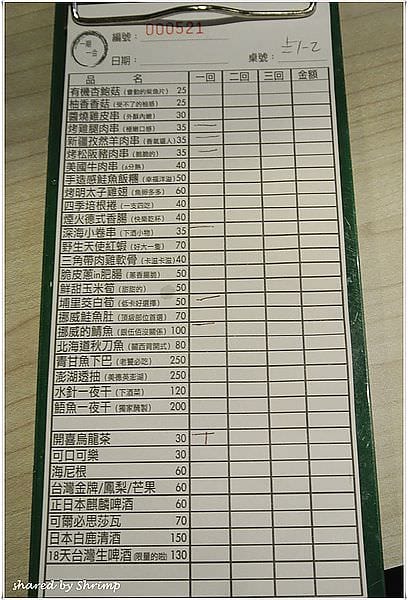 一期一会
編號： 000521
日期： 桌號：
品 名 一回 二回 三回 金額
有機杏鮑菇（會動的柴魚片） 25
柚香香菇（受不了的柚感） 25
醬燒雞皮串（外酥內嫩） 30
烤雞腿肉串（極嫩口感） 35
新疆孜然羊肉串（香氣逼人） 35
烤松阪豬肉串（脆脆的） 35
美國牛肉串（6分熟） 40
手造感鮭魚飯糰（幸福洋溢） 50
烤明太子雞翅（魚卵多多） 60
四季培根捲（一支四吃） 40
煙火德式香腸（快樂乾杯） 40
深海小卷串（下酒小物） 35
野生天使紅蝦（好大一隻） 70
三角帶肉雞軟骨（卡滋卡滋） 40
脆皮蔥in肥腸（蔥香擺脆） 50
鮮甜玉米筍（甜甜的） 50
埔里茭白筍（低卡好選擇） 50
挪威鮭魚肚（頂級部位首選） 70
挪威的鯖魚（跟伍佰沒關係） 100
北海道秋刀魚（關西背開式） 80
青甘魚下巴（老饕必吃） 250
澎湖透抽（美德英澎湖） 250
水針一夜干（下酒菜） 120
鯃魚一夜干（獨家醃製） 200
開喜烏龍茶 30
可口可樂 30
海尼根 60
台灣金牌/鳳梨/芒果 60
正日本麒麟啤酒 60
可爾必思莎瓦 70
日本白鹿清酒 150
18天台灣生啤酒（限量的啦） 130
shared by Shrimp